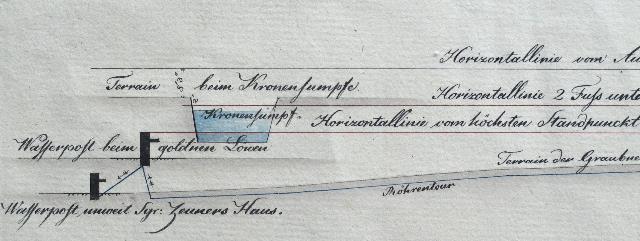 Horizontallinie vom
Terrain beim Kronensumpfe.
Horizontallinie 2 Fuss unte
Kronensumpf.
Horizontallinie vom höchsten Standpunckt
Wasserpost beim goldnen Löwen
Terrain des Graubne
Röhrentour
Wasserpost unweit Hgr: Zeuners Haus.